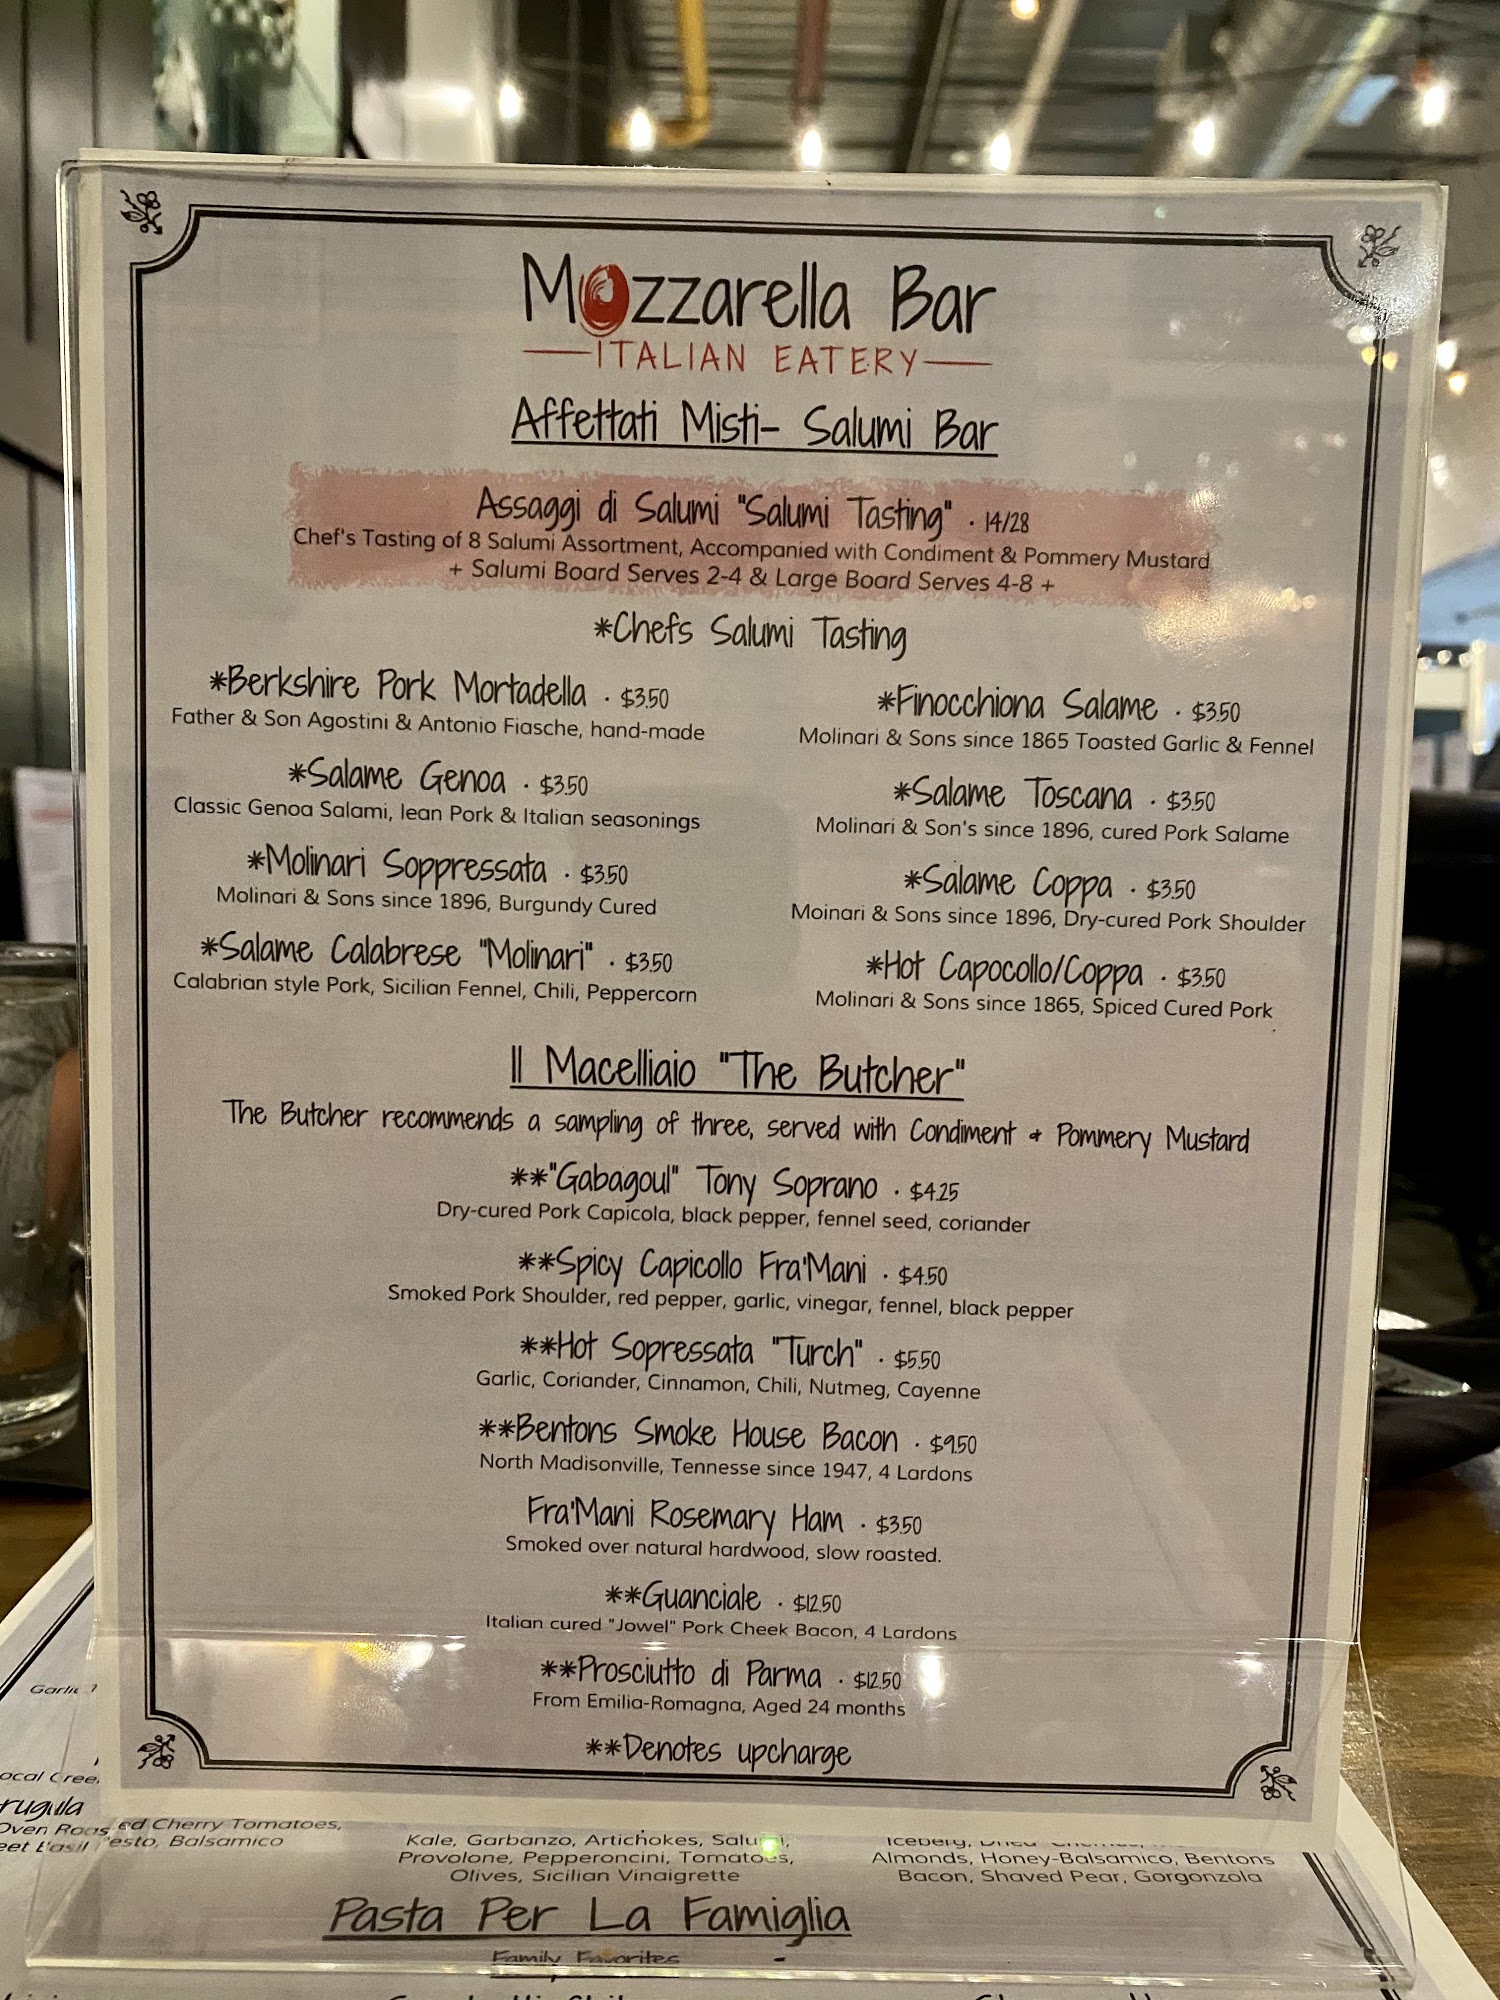 Mozzarella Bar
ITALIAN EATERY
Affettati Misti- Salumi Bar
Assaggi di Salumi "Salumi Tasting" · 14/28
Chef's Tasting of 8 Salumi Assortment, Accompanied with Condiment & Pommery Mustard
+ Salumi Board Serves 2-4 & Large Board Serves 4-8 +
*Chefs Salumi Tasting
*Berkshire Pork Mortadella · $3.50
Father & Son Agostini & Antonio Fiasche, hand-made
*Salame Genoa · $3.50
Classic Genoa Salami, lean Pork & Italian seasonings
*Molinari Soppressata · $3.50
Molinari & Sons since 1896, Burgundy Cured
*Salame Calabrese "Molinari" · $3.50
Calabrian style Pork, Sicilian Fennel, Chili, Peppercorn
*Finocchiona Salame · $3.50
Molinari & Sons since 1865 Toasted Garlic & Fennel
*Salame Toscana · $3.50
Molinari & Son's since 1896, cured Pork Salame
*Salame Coppa · $3.50
Moinari & Sons since 1896, Dry-cured Pork Shoulder
*Hot Capocollo/Coppa · $3.50
Molinari & Sons since 1865, Spiced Cured Pork
Il Macelliaio "The Butcher"
The Butcher recommends a sampling of three, served with Condiment & Pommery Mustard
**"Gabagoul" Tony Soprano · $4.25
Dry-cured Pork Capicola, black pepper, fennel seed, coriander
**Spicy Capicollo Fra'Mani · $4.50
Smoked Pork Shoulder, red pepper, garlic, vinegar, fennel, black pepper
**Hot Sopressata "Turch" · $5.50
Garlic, Coriander, Cinnamon, Chili, Nutmeg, Cayenne
**Bentons Smoke House Bacon · $9.50
North Madisonville, Tennesse since 1947, 4 Lardons
Fra'Mani Rosemary Ham · $3.50
Smoked over natural hardwood, slow roasted.
**Guanciale · $12.50
Italian cured "Jowel" Pork Cheek Bacon, 4 Lardons
**Prosciutto di Parma · $12.50
From Emilia-Romagna, Aged 24 months
**Denotes upcharge
Garlic
Cherry Tomatoes,
Balsamico
Kale, Garbanzo, Artichokes, Salumi,
Provolone, Pepperoncini, Tomatoes,
Olives, Sicilian Vinaigrette
Iceberg,
Almonds, Honey-Balsamico, Bentons
Bacon, Shaved Pear, Gorgonzola
Pasta Per La Famiglia
Family Favorites